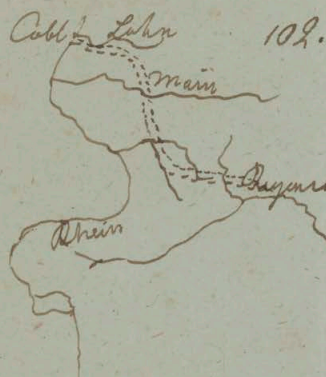 Cobl Lahn 102.
Main
Regens
Rhein